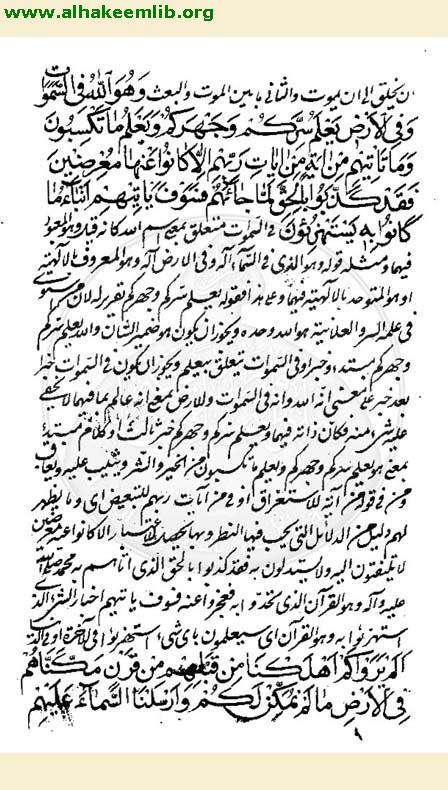 www.alhakeemlib.org
ن يخلق الى ان يموت والثانى ما بين الموت والبعث وَهُوَ اللّٰهُ فِي السَّمٰوَاتِ
وَفِي الْاَرْضِ يَعْلَمُ سِرَّكُمْ وَجَهْرَكُمْ وَيَعْلَمُ مَا تَكْسِبُونَ
وَمَا تَاْتِيهِمْ مِنْ اٰيَةٍ مِنْ اٰيَاتِ رَبِّهِمْ اِلَّا كَانُوا عَنْهَا مُعْرِضِينَ
فَقَدْ كَذَّبُوا بِالْحَقِّ لَمَّا جَائَهُمْ فَسَوْفَ يَاْتِيهِمْ اَنْبَاءُ مَا
كَانُوا بِهِ يَسْتَهْزِئُونَ فى السموات متعلق بمعنى اسم الله كانه قيل وهو المعبود
فيها ومثله قوله وهو الذى فى السماء اله وفى الارض اله وهو المعروف بالالهية
او هو المتوحد بالالهية فيها وعلى هذا فقوله يعلم سركم وجهركم تقرير له لان الذى استوى
فى علمه السر والعلانية هو الله وحده ويجوز ان يكون هو ضمير الشان والله يعلم سركم
وجهركم مبتدء وخبر او فى السموات يتعلق بيعلم ويجوز ان يكون فى السموات خبرا
بعد خبر على معنى انه الله وانه فى السموات والارض بمعنى انه عالم بما فيهما لا يخفى
عليه شىء منه فكان ذاته فيهما ويعلم سركم وجهركم خبر ثالث او كلام مبتدء
بمعنى هو يعلم سركم وجهركم ويعلم ما تكسبون من الخير والشر ويثيب عليه ويعاقب
ومن فى قوله من اية للاستغراق او فى من ايات ربهم للتبعيض اى وما يظهر
لهم دليل من الدلائل التى يجب فيها النظر وبها يحصل الاعتبار الا كانوا عنه معرضين
لا يلتفتون اليه ولا يستدلون به فقد كذبوا بالحق الذى اتاهم به محمد صلى الله
عليه وآله وهو القرآن الذى تحدوا به فعجزوا عنه فسوف ياتيهم اخبار الشىء الذى
استهزئوا به وهو القرآن اى سيعلمون باى شىء استهزئوا فى الآخرة او فى الدنيا
اَلَمْ يَرَوْا كَمْ اَهْلَكْنَا مِنْ قَبْلِهِمْ مِنْ قَرْنٍ مَكَّنَّاهُمْ
فِي الْاَرْضِ مَا لَمْ نُمَكِّنْ لَكُمْ وَاَرْسَلْنَا السَّمَاءَ عَلَيْهِمْ